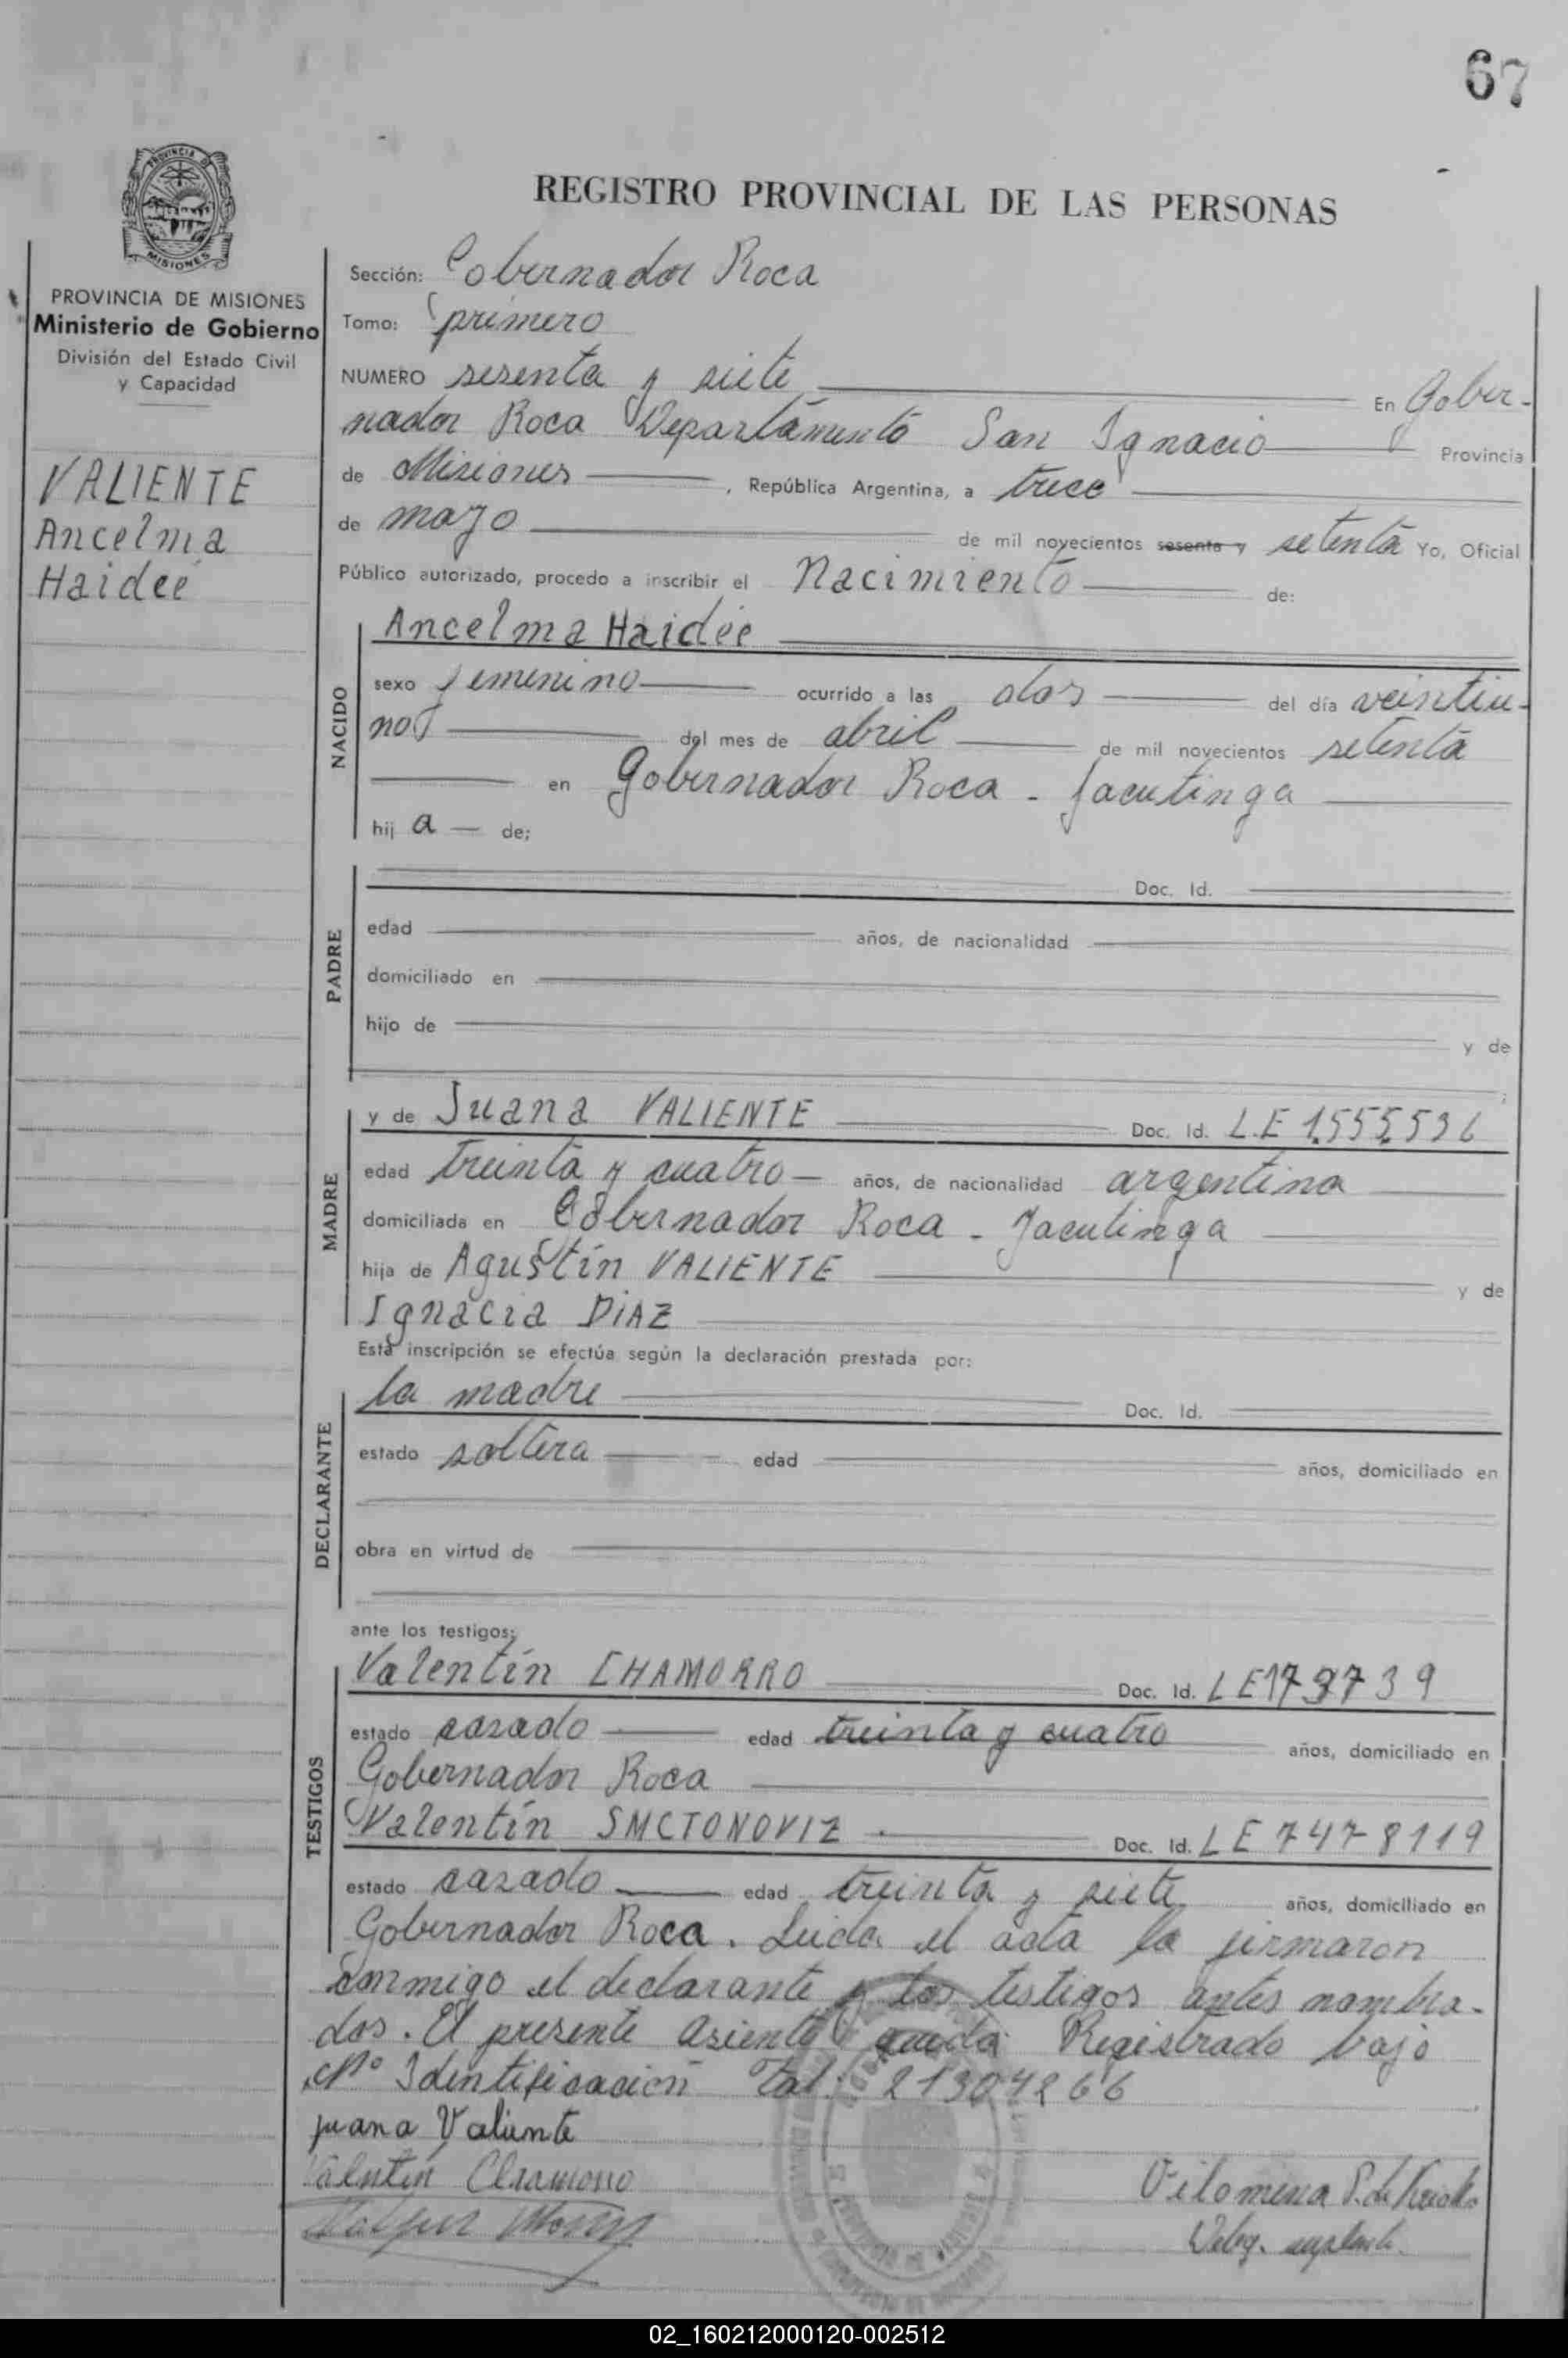 67
PROVINCIA DE
MISIONES
PROVINCIA DE MISIONES
Ministerio de Gobierno
División del Estado Civil
y Capacidad
VALIENTE
Ancelma
Haideé
REGISTRO PROVINCIAL DE LAS PERSONAS
Sección: Gobernador Roca
Tomo: primero
NUMERO sesenta y siete En Gober-
nador Roca Departamento San Ignacio Provincia
de Misiones, República Argentina, a trece
de mayo de mil novecientos sesenta y setenta Yo, Oficial
Público autorizado, procedo a inscribir el Nacimiento de:
NACIDO
Ancelma Haidée
sexo femenino ocurrido a las dos del día veintiu-
no del mes de abril de mil novecientos setenta
en Gobernador Roca - Jacutinga
hij a de;
PADRE
Doc. Id.
edad años, de nacionalidad
domiciliado en
hijo de y de
MADRE
y de Juana VALIENTE Doc. Id. L.E 1.555.536
edad treinta y cuatro años, de nacionalidad argentina
domiciliada en Gobernador Roca - Jacutinga
hija de Agustín VALIENTE y de
Ignacia DIAZ
Esta inscripción se efectúa según la declaración prestada por:
DECLARANTE
la madre Doc. Id.
estado soltera edad años, domiciliado en
obra en virtud de
ante los testigos;
TESTIGOS
Valentín CHAMORRO Doc. Id. LE
estado casado edad treinta y cuatro años, domiciliado en
Gobernador Roca
Valentín SMCTONOVIZ Doc. Id. LE 7478119
estado casado edad treinta y siete años, domiciliado en
Gobernador Roca. Leida el acta la firmaron
conmigo el declarante y los testigos antes nombra-
dos. El presente asiento queda Registrado bajo
Nº Identificación Tal: 21304266
juana Valiente
Valentín Chamorro
Vilomena S. de
Deleg. suplente.
02_160212000120-002512